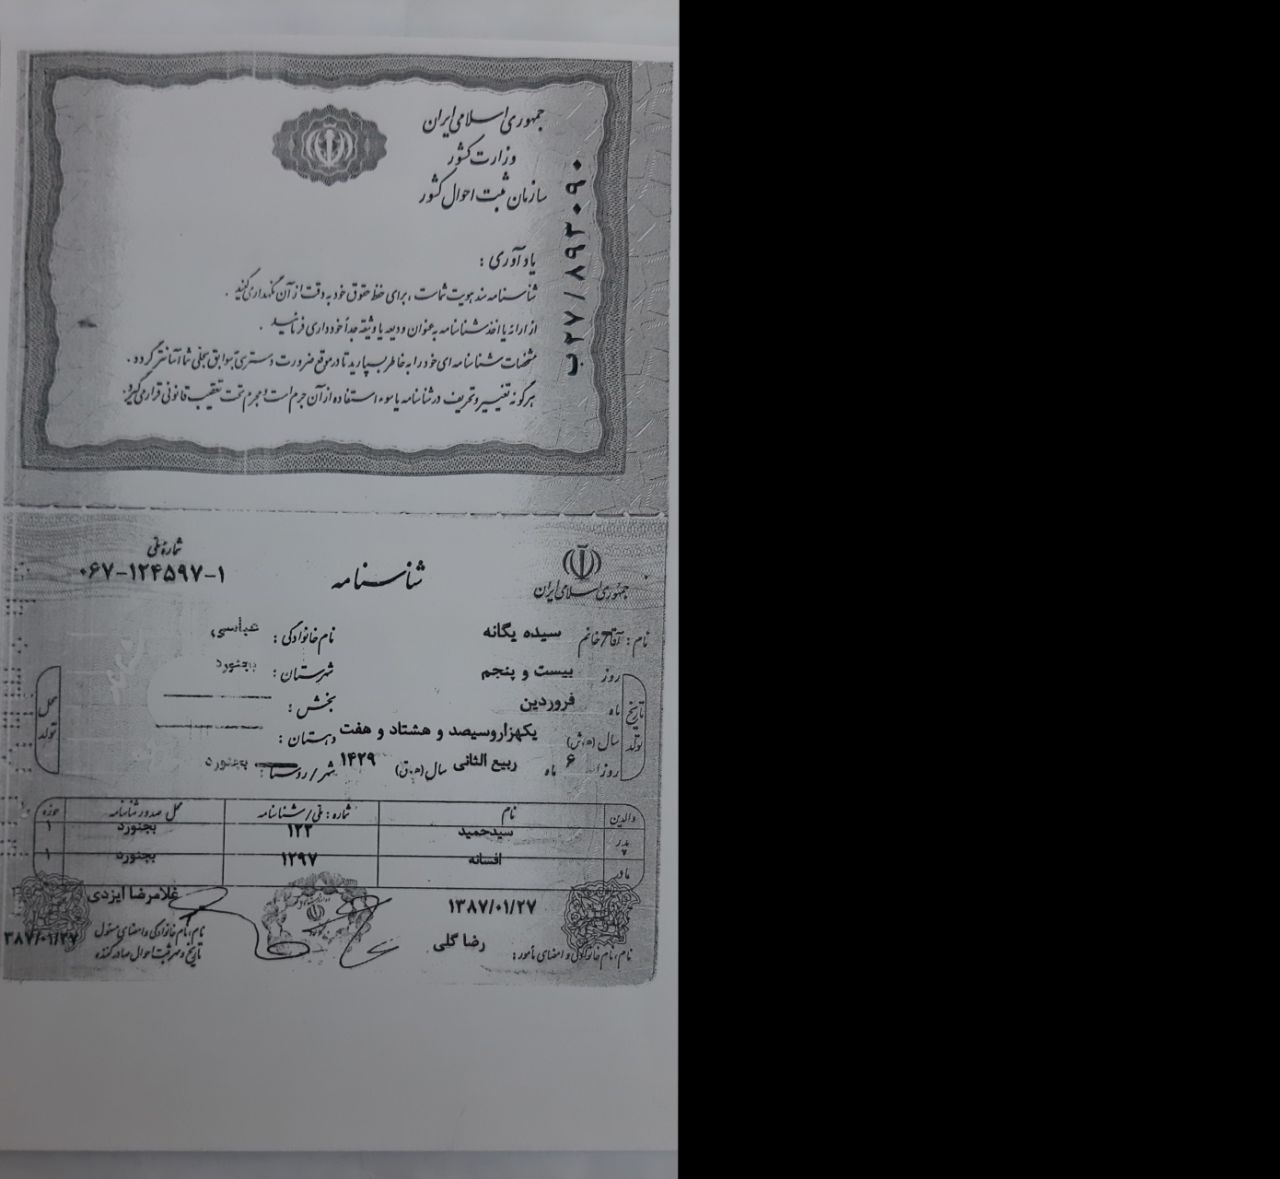 جمهوری اسلامی ایران
وزارت کشور
سازمان ثبت احوال کشور
ب۲۷/۸۹۳۰۹۰
یادآوری :
شناسنامه سند هویت شماست ، برای حفظ حقوق خود به دقت از آن نگهداری کنید .
از ارائه یا اخذ شناسنامه به عنوان ودیعه یا وثیقه جداً خودداری فرمائید .
مشخصات شناسنامه ای خود را به خاطر بسپارید تا در موقع ضرورت دسترسی به سوابق سجلی شما آسانتر گردد .
هرگونه تغییر و تحریف در شناسنامه یا سوء استفاده از آن جرم است و مجرم تحت تعقیب قانونی قرار می گیرد .
جمهوری اسلامی ایران
شناسنامه
شماره ملی
۰۶۷-۱۲۴۵۹۷-۱
نام : آقا/خانم سیده یگانه نام خانوادگی : عباسی
تاریخ تولد
روز بیست و پنجم شهرستان : بجنورد
ماه فروردین بخش :
سال (ه.ش) یکهزاروسیصد و هشتاد و هفت دهستان :
روز ۶ ماه ربیع الثانی سال (ه.ق) ۱۴۲۹ شهر/روستا : بجنورد
محل تولد
والدین نام شماره : ملی/شناسنامه محل صدور شناسنامه حوزه
پدر سیدحمید ۱۲۲ بجنورد ۱
مادر افسانه ۱۲۹۷ بجنورد ۱
۱۳۸۷/۰۱/۲۷ غلامرضا ایزدی
رضا گلی
نام، نام خانوادگی و امضای مأمور :
نام، نام خانوادگی و امضای مسئول
تاریخ و مهر ثبت احوال صادرکننده
۳۸۷/۰۱/۲۷